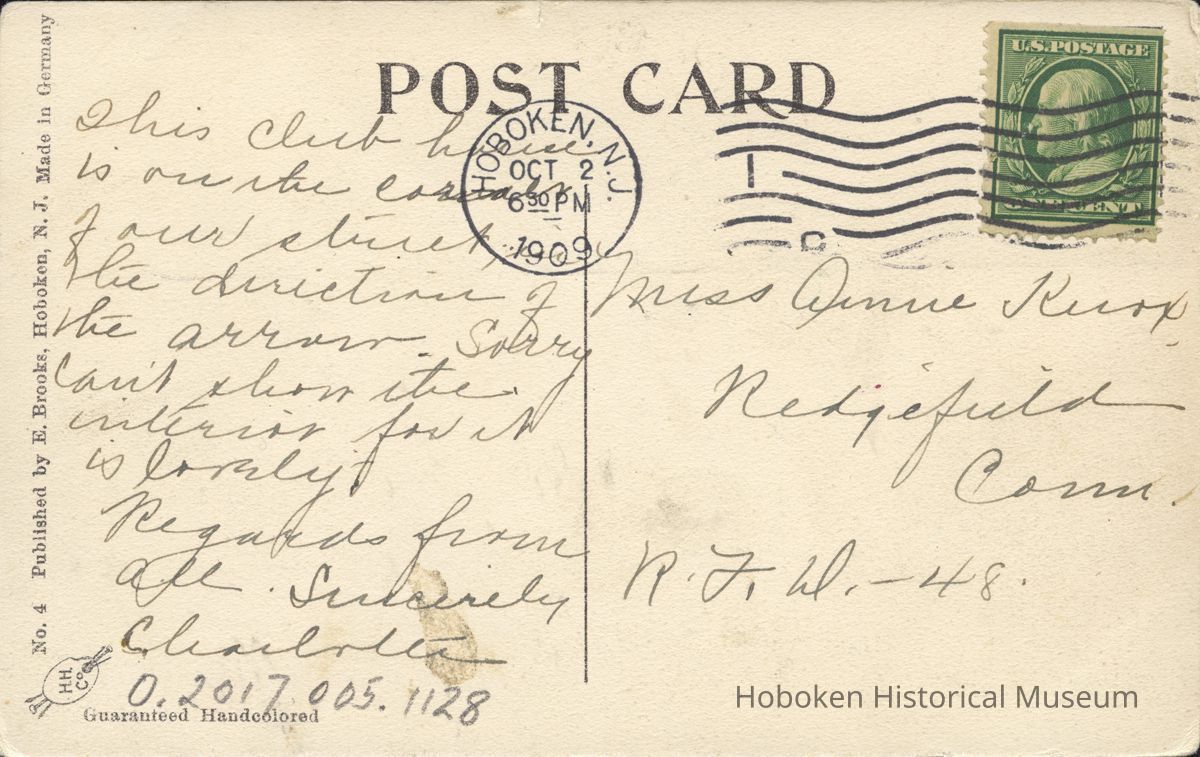 POST CARD
U.S. POSTAGE
ONE CENT
HOBOKEN, N.J.
OCT 2
6 30 PM
1909
1
C
This club house
is on the corner
of our street,
the direction of
the arrow. Sorry
can't show the
interior for it
is lovely.
Regards from
all. Sincerely
Charlotte
Miss Annie Knox
Redgefield
Conn.
R. F. D. - 48.
No. 4 Published by E. Brooks, Hoboken, N. J. Made in Germany
H.H.
Co
O.2017.005.1128
Guaranteed Handcolored
Hoboken Historical Museum